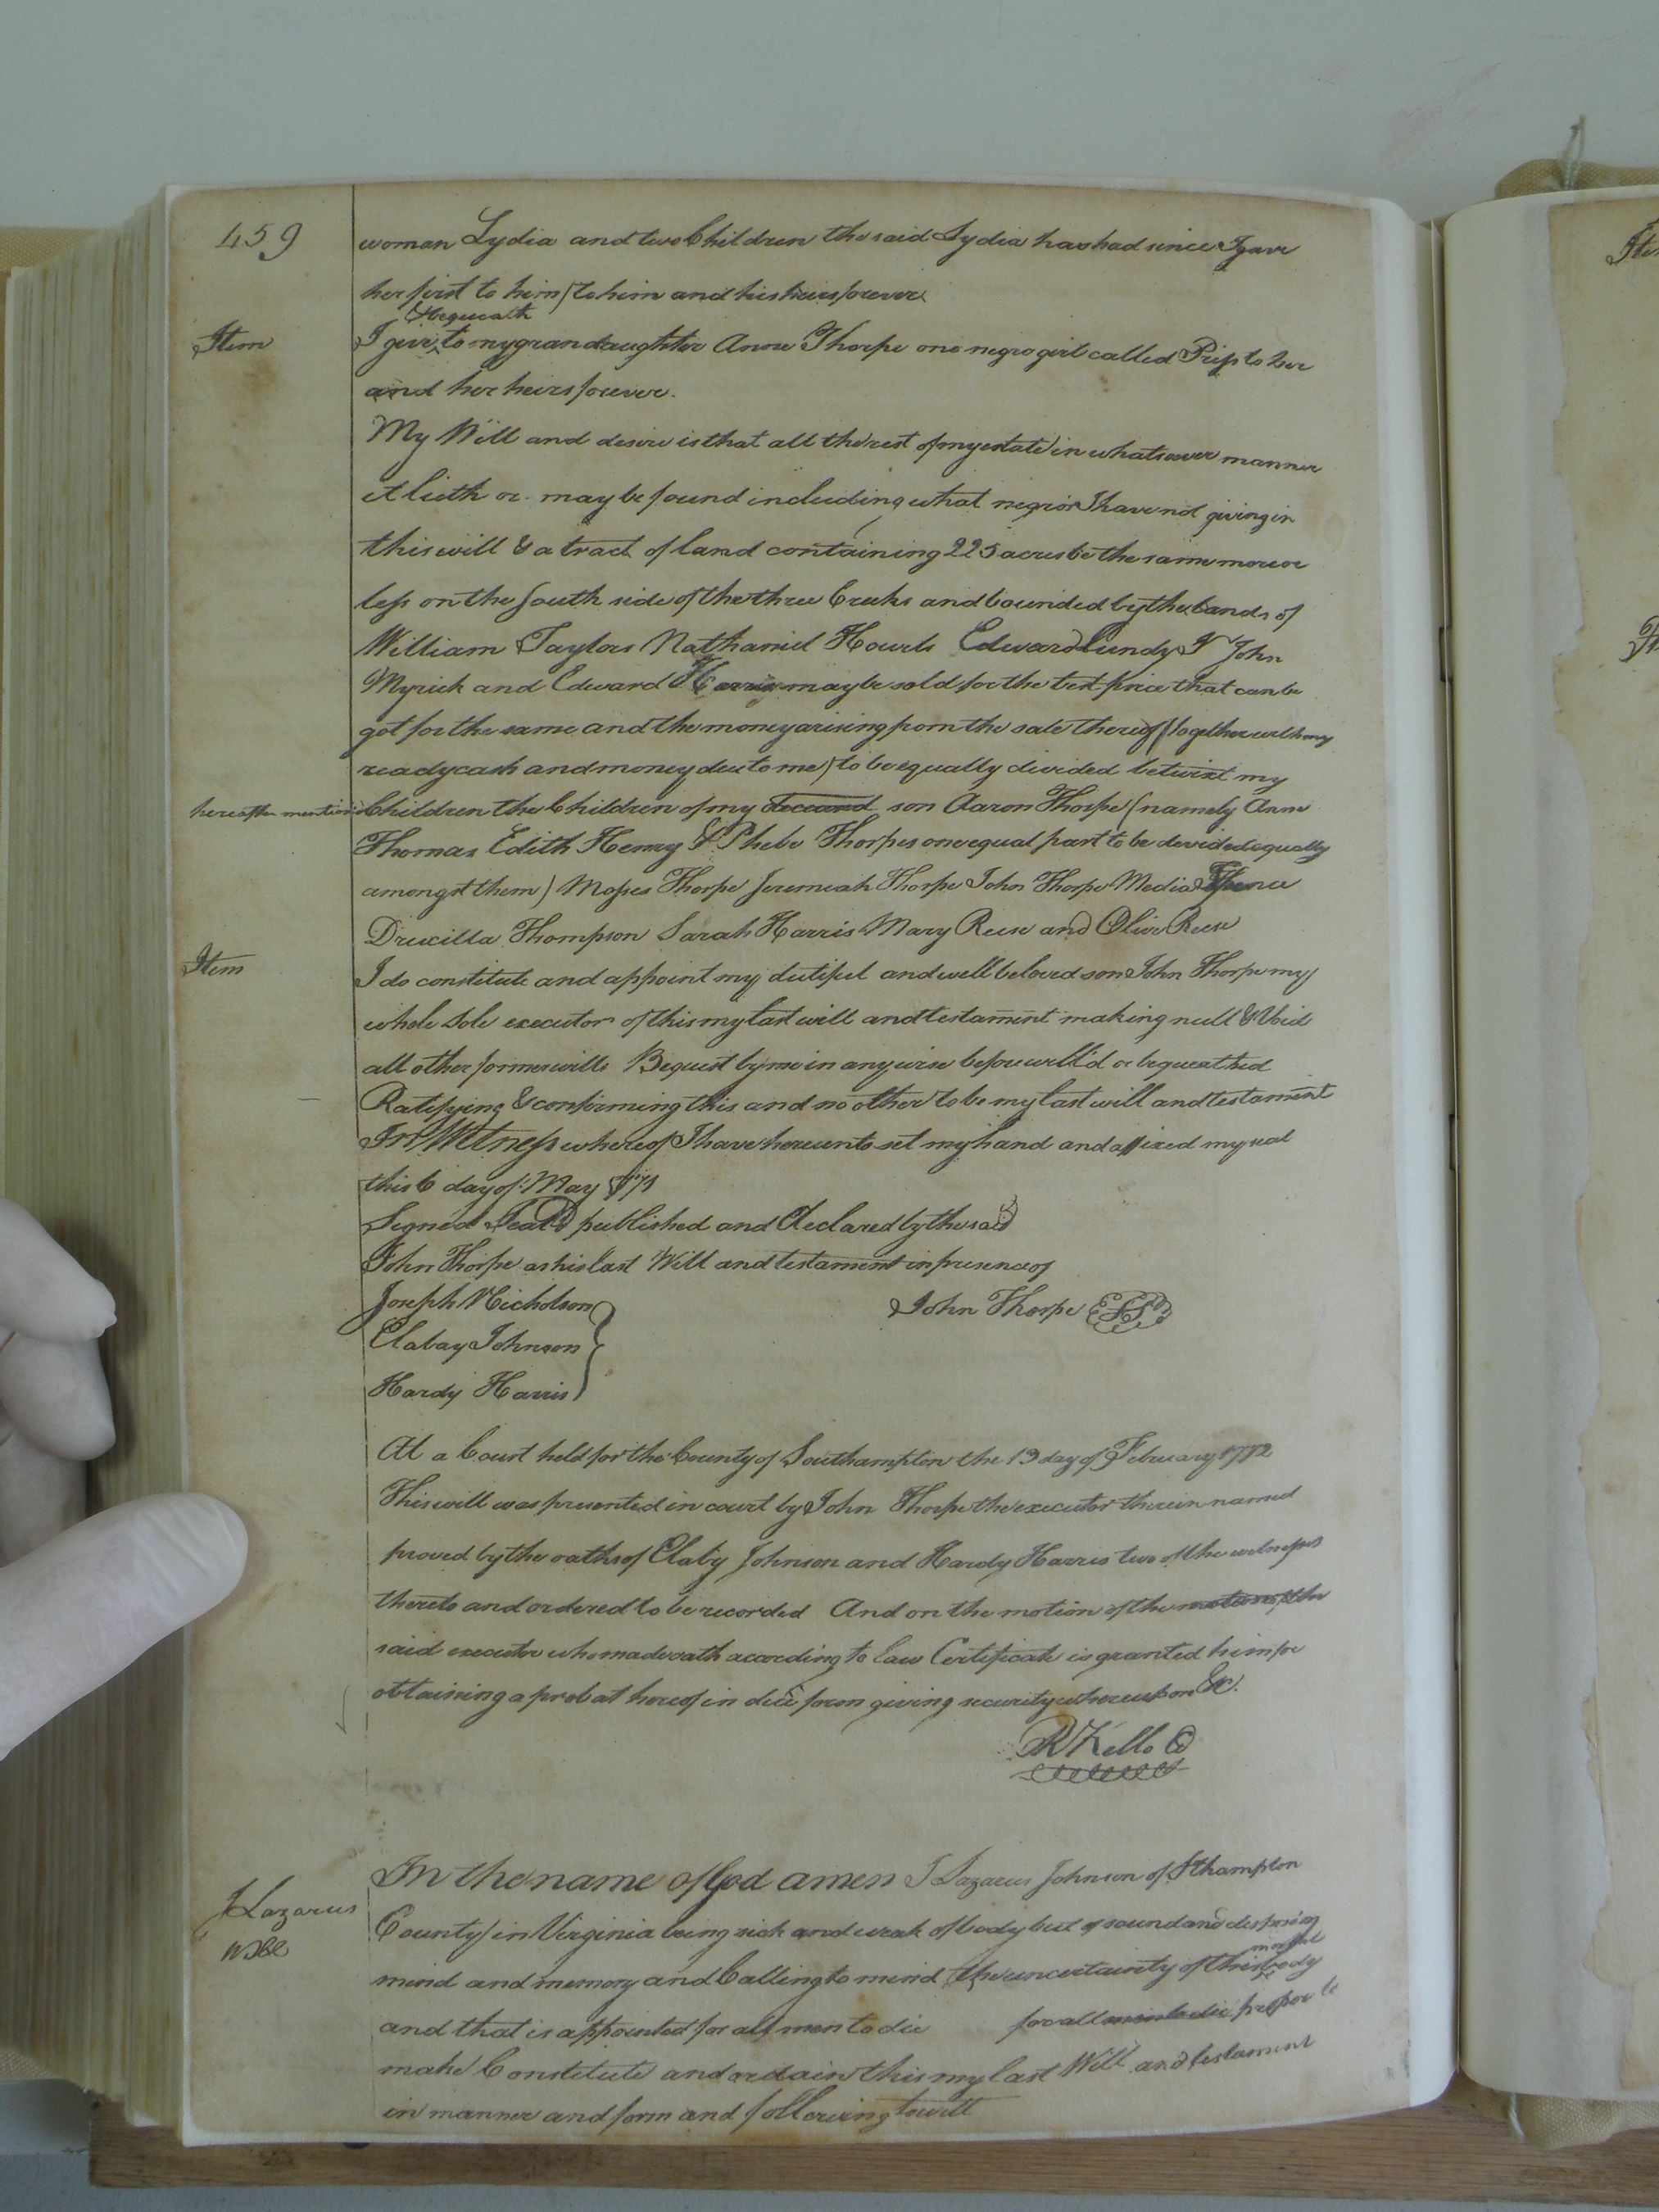 459
woman Lydia and two Children the said Lydia has had since I gave
her first to him) to him and his heirs forever
& bequeath
Item I give ‸ to my grandaughter Anne Thorpe one negro girl called Priss to her
and her heirs forever.
My Will and desire is that all the rest of my estate in whatsoever manner
it lieth or may be found including what negros I have not giving in
this will & a tract of land containing 225 acres be the same more or
less on the South side of the three Creeks and bounded by the Lands of
William Taylors Nathaniel Howels Edward Lundy & John
Myrick and Edward Harris may be sold for the best price that can be
got for the same and the money arising from the sale thereof (together with my
ready cash and money due to me) to be equally divided betwixt my
hereafter mention'd Children the Children of my deceased son Aaron Thorpe (namely Anne
Thomas Edith Henry & Phebe Thorpes one equal part to be devided equally
amongst them) Moses Thorpe Jeremiah Thorpe John Thorpe Media
Drucilla Thompson Sarah Harris Mary Reese and Olive Reese
Item I do constitute and appoint my dutiful and well beloved son John Thorpe my
whole Sole executor of this my last will and testament making null & Void
all other former wills Bequest by me in any wise before will'd or bequeathed
Ratifying & confirming this and no other to be my last will and testament
In Witness whereof I have hereunto set my hand and affixed my seal
this 6 day of May 1771
Signed Seal'd published and declared by the said
John Thorpe as his last Will and testament in presence of
Joseph Nicholson John Thorpe LS
Elabay Johnson
Hardy Harris
At a Court held for the County of Southampton the 13 day of February 1772
This will was presented in court by John Thorpe the executor therein named
proved by the oaths of Elaby Johnson and Hardy Harris two of the witnesses
thereto and ordered to be recorded And on the motion of the motion of the
said executor who made oath according to Law Certificate is granted him for
obtaining a probat hereof in due form giving security whereupon &c.
R Kello C
In the name of God amen I Lazarus Johnson of Sthampton
J Lazarus County in Virginia being sick and weak of body but of sound and desposing
will
mortal
mind and memory and Calling to mind the uncertainty of this ‸ body
and that is appointed for all men to die for all men to die
make Constitute and ordain this my last Will and testament
in manner and form and following to wit